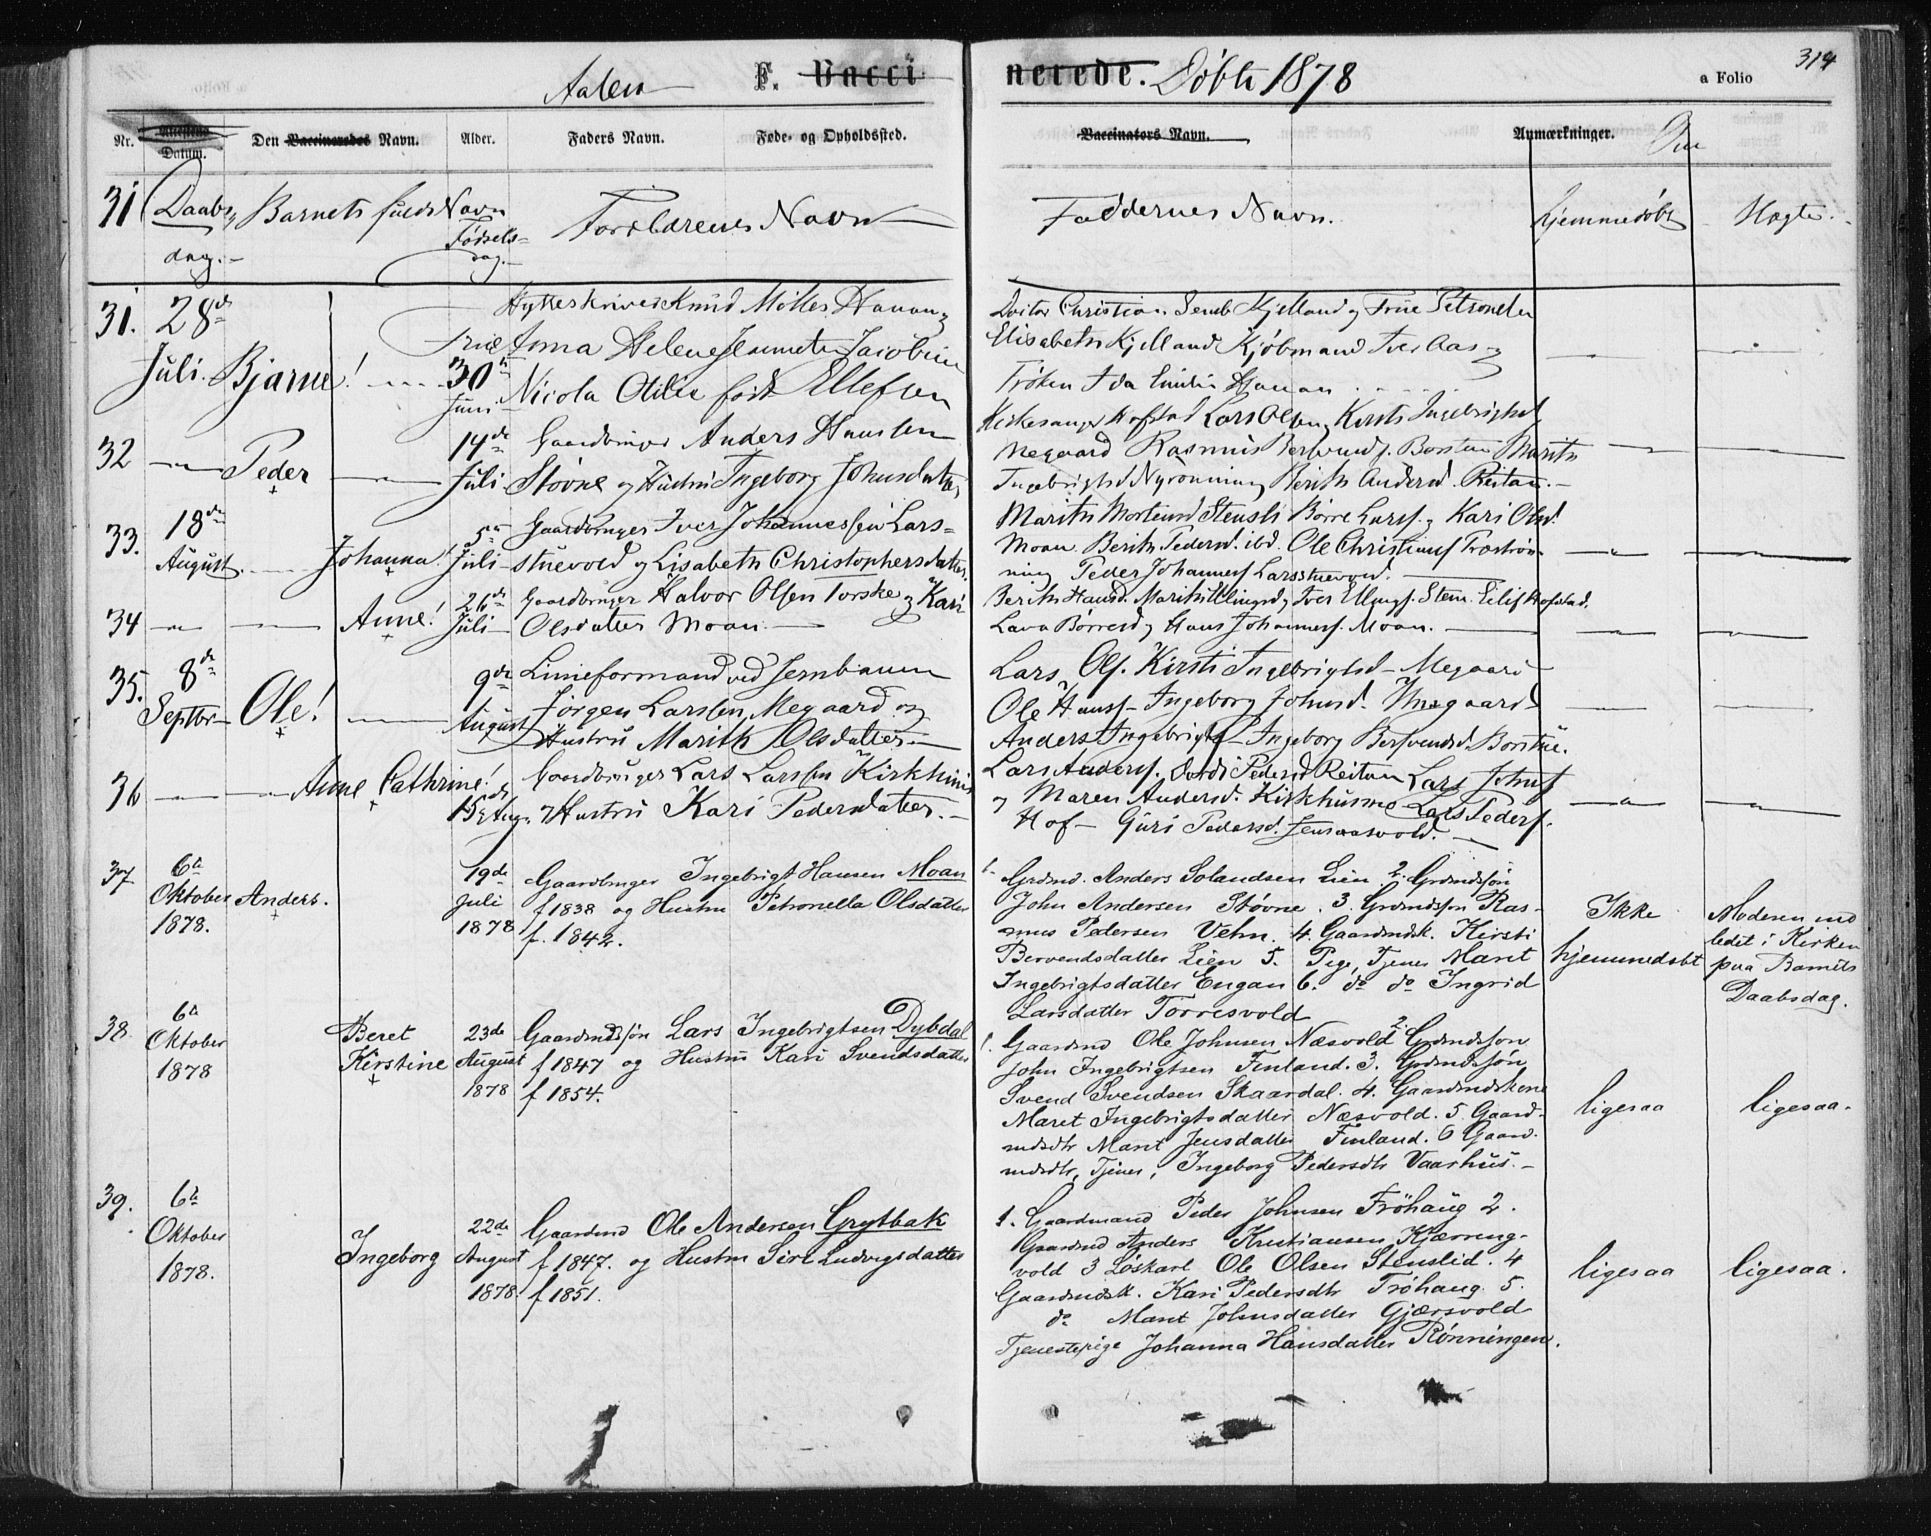 Aalen F. Vacci nerede. Døbte 1878 a Folio 314
Nr. Datum. Den Vaccineredes Navn. Alder. Faders Navn. Føde- og Opholdssted. Vaccinators Navn. Anmærkninger. Om
31 Daabs Barnets fulde Navn Fødsels- Forældrenes Navn Faddernes Navn. hjemmedøbt Mogte
dag.- dag.-
31. 28de Hytteskriver Knud Møller Hanan og
Frue Anna Helene Jeannette Jacobine
Juli. Bjarne! 30te Nicola Otilie født Ellefsen
Juni
Doctor Christian Kjelland og Frue Petronelle
Elisabeth Kjelland Kjøbmand Iver Aas og
Frøken Ida Emilie Hanan
32 Peder 14de Gaardbruger Anders Hansen
Juli Støvne og Hustru Ingeborg Johnsdatter
Kirkesanger Hofstad Lars Olsen Kirsti Ingebrigtsd
Megaard Rasmus Bersvends. Borstu Marith
Ingebrigtsd Nyrønning Berith Andersd. Reitan.
33. 18de 5te Gaardbruger Iver Johannessen Lars-
August Johanna! Juli stuevold og Lisabeth Christophersdatter.
Marith Mortensd Stensli Børre Larss. og Kari Olsd.
Moan. Berith Pedersd. ibd. Ole Christians Trøstrøn-
ning Peder Johanness Larsstuevold.
34 Anne! 26de Gaardbruger Halvor Olsen Torske og Kari
Juli Olsdatter Moan.
Berith Hansd. Marith Ellingsd og Iver Ellings. Sten. Eilif Hofstad.
Lava Børresd og Hans Johanness. Moan.
35. 8de 9de Linieformand ved Jernbanen
Septbr Ole! August Jørgen Larssen Megaard og
Hustru Marith Olsdatter
Lars Ols. Kirsti Ingebrigtsd Megaard
Ole Hanss Ingeborg Johnsd.
Anders Ingebrigts Ingeborg Bersvendsd. Borstue.
36 Anne Cathrine! Gaardbruger Lars Larssen Kirkhus
15de Aug. og Hustru Kari Pedersdatter.
Lars Anderss. Pedersd Reitan Lars Johns
og Maren Andersd. Kirkhusmo Lars Peders.
Hof Guri Pedersd. Jensaasvold.
37 6te 19de Gaardbruger Ingebrigt Hansen Moan
Oktober Anders. Juli f 1838 og Hustru Petronella Olsdatter
1878. 1878 f. 1842.
1. Grdmd. Anders Solandsen Lien 2. Grdmdssøn
John Andersen Støvne. 3. Grdmdssøn Ras-
mus Pedersen Vehn. 4. Gaardmdsk. Kirsti
Bersvendsdatter Lien 5. Pige, Tjener Maret
Ingebrigtsdatter Engan 6. do do Ingrid
Larsdatter Torresvold
Ikke
hjemmedøbt
Moderen ind
ledet i Kirken
paa Barnets
Daabsdag.
38. 6te Beret 23de Gaardmdssøn Lars Ingebrigtsen Dybdal
Oktober Kirstine August f 1847 og Hustru Kari Svendsdatter
1878 1878 f 1854.
1. Gaardmd Ole Johnsen Næsvold 2 Grdmdssøn
John Ingebrigtsen Finland. 3. Grdmdssøn
Svend Svendsen Skaardal. 4. Gaardmdskone
Maret Ingebrigtsdatter Næsvold. 5 Gaard-
mdsdtr Marit Jensdatter Finland. 6 Gaard-
mdsdtr, Tjener, Ingeborg Pedersdtr Vaarhus.
ligesaa ligesaa.
39. 6te 22de Gaardmd Ole Andersen Grytbak
Oktober Ingeborg August f 1847. og Hustru Siri Ludvigsdatter
1878. 1878. f 1851.
1. Gaardmand Peder Johnsen Frøhaug 2.
Gaardmd Anders Kristiansen Kjærreng-
vold 3 Løskarl Ole Olsen Stenslid. 4
Gaardmdsk. Kari Pedersdtr Frøhaug 5.
do Marit Johnsdatter Gjærsvold
Tjenestepige Johanna Hansdatter Rønningen.
ligesaa ligesaa.